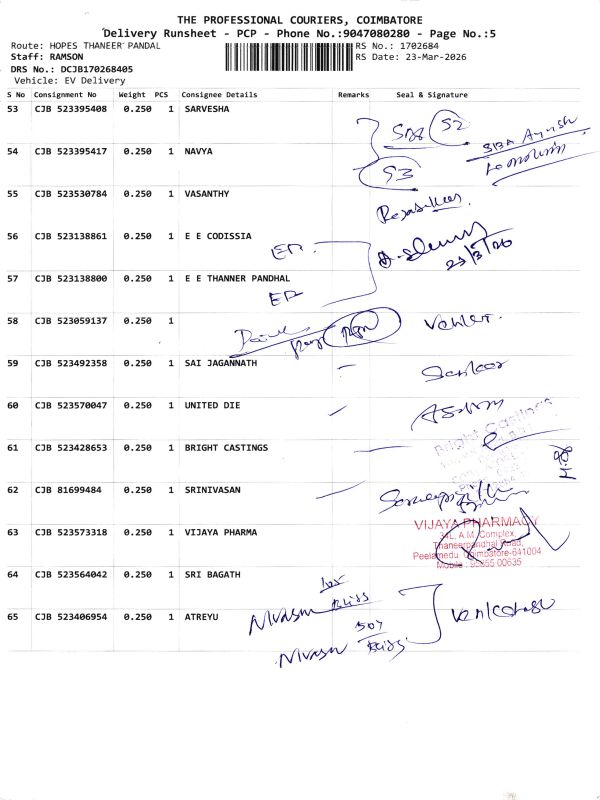 THE PROFESSIONAL COURIERS, COIMBATORE
Delivery Runsheet - PCP - Phone No.:9047080280 - Page No.:5
Route: HOPES THANEER PANDAL
RS No.: 1702684
Staff: RAMSON
RS Date: 23-Mar-2026
DRS No.: DCJB170268405
Vehicle: EV Delivery
S No Consignment No Weight PCS Consignee Details Remarks Seal & Signature
53 CJB 523395408 0.250 1 SARVESHA
S2
54 CJB 523395417 0.250 1 NAVYA
S3
55 CJB 523530784 0.250 1 VASANTHY
56 CJB 523138861 0.250 1 E E CODISSIA
23/3/26
57 CJB 523138800 0.250 1 E E THANNER PANDHAL
58 CJB 523059137 0.250 1
59 CJB 523492358 0.250 1 SAI JAGANNATH
60 CJB 523570047 0.250 1 UNITED DIE
Bright Castings
61 CJB 523428653 0.250 1 BRIGHT CASTINGS
62 CJB 81699484 0.250 1 SRINIVASAN
63 CJB 523573318 0.250 1 VIJAYA PHARMA
VIJAYA PHARMACY
A.M. Complex,
Thaneerpandhal Road,
Peelamedu, Coimbatore-641004
64 CJB 523564042 0.250 1 SRI BAGATH
Bliss
65 CJB 523406954 0.250 1 ATREYU
507
Bliss